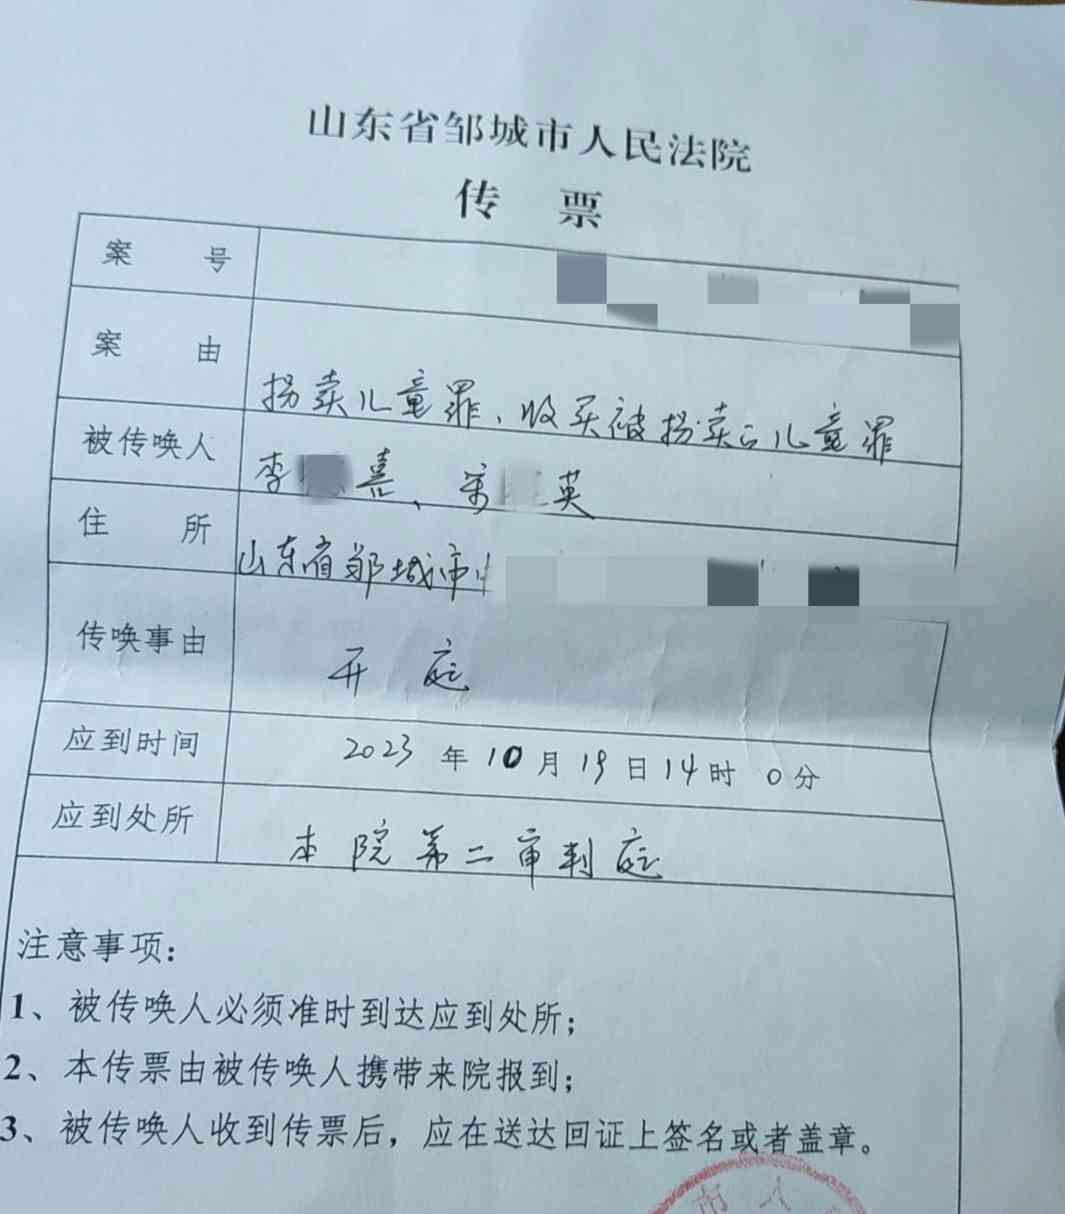 山东省邹城市人民法院
传 票
案 号
案 由 拐卖儿童罪、收买被拐卖的儿童罪
被传唤人 李 喜、 英
住 所 山东省邹城市
传唤事由 开 庭
应到时间 2023 年 10 月 19 日 14 时 0 分
应到处所 本院第二审判庭
注意事项:
1、被传唤人必须准时到达应到处所;
2、本传票由被传唤人携带来院报到;
3、被传唤人收到传票后,应在送达回证上签名或者盖章。
市 人